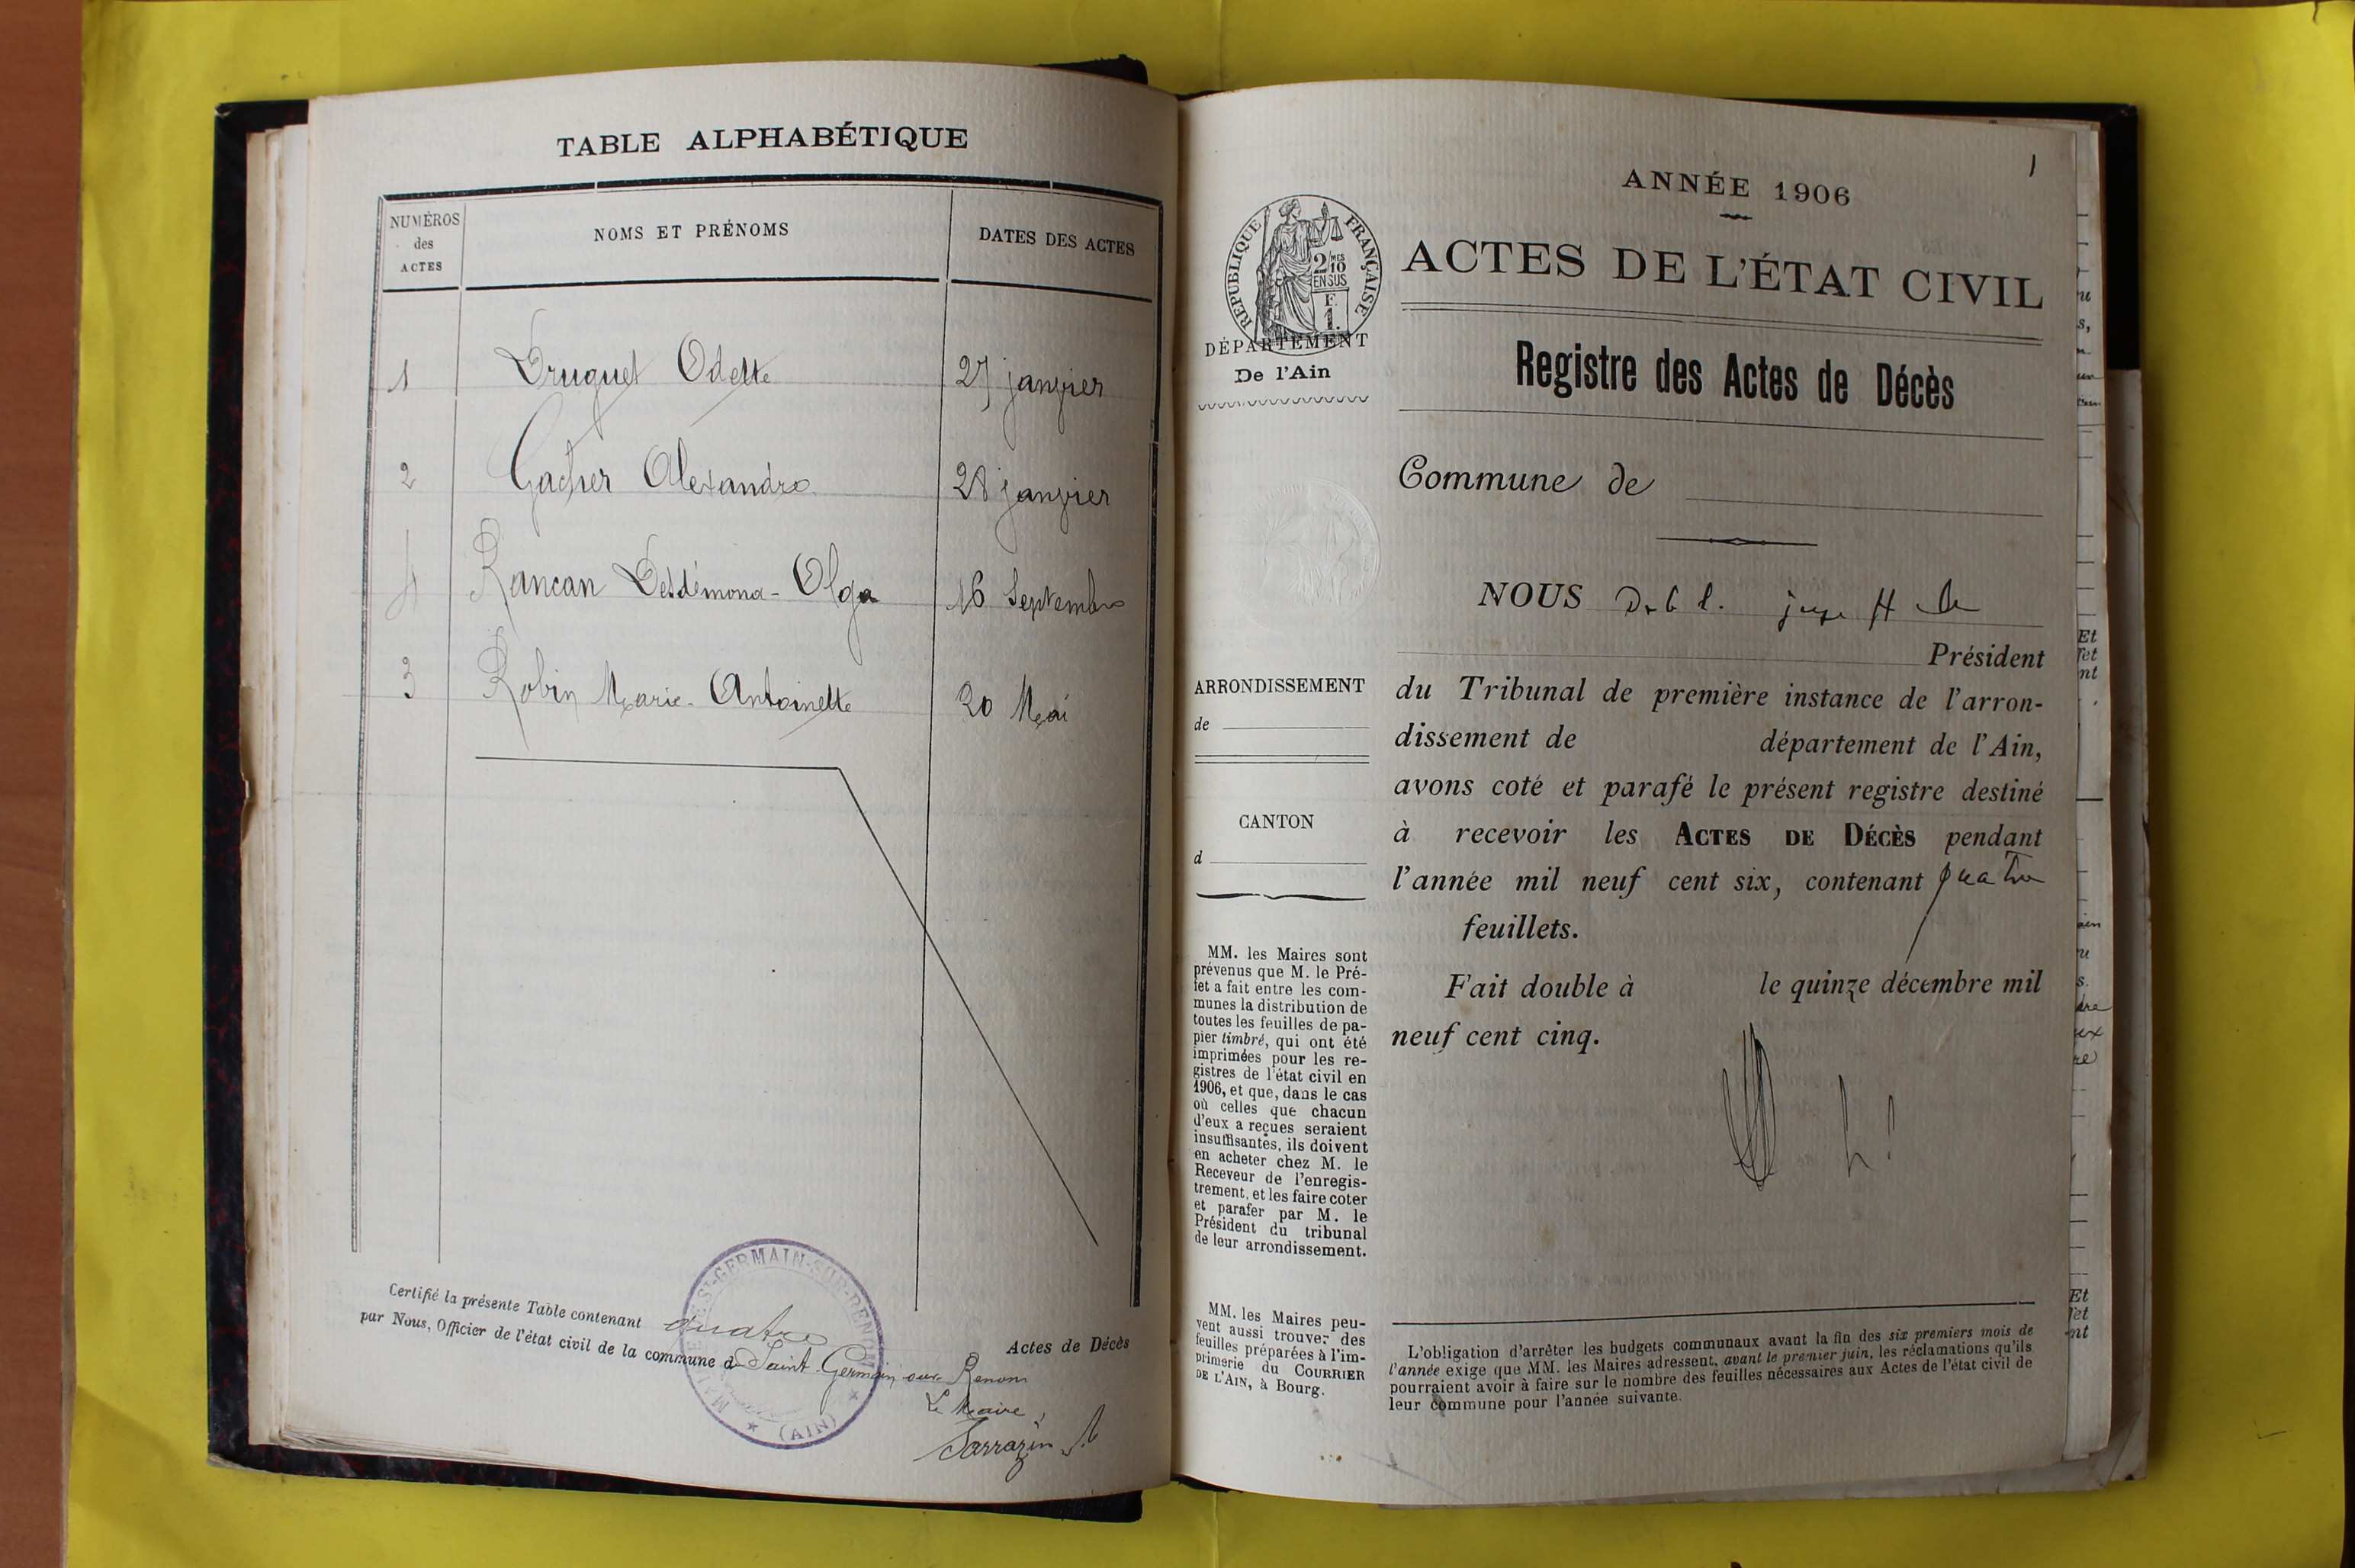 TABLE ALPHABÉTIQUE
NUMÉROS des ACTES
NOMS ET PRÉNOMS
DATES DES ACTES
1 Druguet Odette 27 janvier
2 Gacher Alexandre 28 janvier
4 Rancan Desdémona-Olga 16 Septembre
3 Robin Marie-Antoinette 20 Mai
Certifié la présente Table contenant quatre Actes de Décès
par Nous, Officier de l'état civil de la commune d Saint Germain sur Renom
Le Maire,
Sarrazin
(AIN)
1
RÉPUBLIQUE FRANÇAISE
2/10 MES
EN SUS
F.
1.
DÉPARTEMENT
De l'Ain
ARRONDISSEMENT
de
CANTON
d
MM. les Maires sont
prévenus que M. le Pré-
fet a fait entre les com-
munes la distribution de
toutes les feuilles de pa-
pier timbré, qui ont été
imprimées pour les re-
gistres de l'état civil en
1906, et que, dans le cas
où celles que chacun
d'eux a reçues seraient
insuffisantes, ils doivent
en acheter chez M. le
Receveur de l'enregis-
trement, et les faire coter
et parafer par M. le
Président du tribunal
de leur arrondissement.
MM. les Maires peu-
vent aussi trouver des
feuilles préparées à l'im-
primerie du COURRIER
DE L'AIN, à Bourg.
ANNÉE 1906
ACTES DE L'ÉTAT CIVIL
Registre des Actes de Décès
Commune de
NOUS
Président
du Tribunal de première instance de l'arron-
dissement de département de l'Ain,
avons coté et parafé le présent registre destiné
à recevoir les ACTES DE DÉCÈS pendant
l'année mil neuf cent six, contenant quatre
feuillets.
Fait double à le quinze décembre mil
neuf cent cinq.
L'obligation d'arrêter les budgets communaux avant la fin des six premiers mois de
l'année exige que MM. les Maires adressent, avant le premier juin, les réclamations qu'ils
pourraient avoir à faire sur le nombre des feuilles nécessaires aux Actes de l'état civil de
leur commune pour l'année suivante.